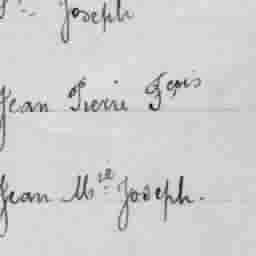 Joseph
Jean Pierre Fçois
Jean Mie Joseph.